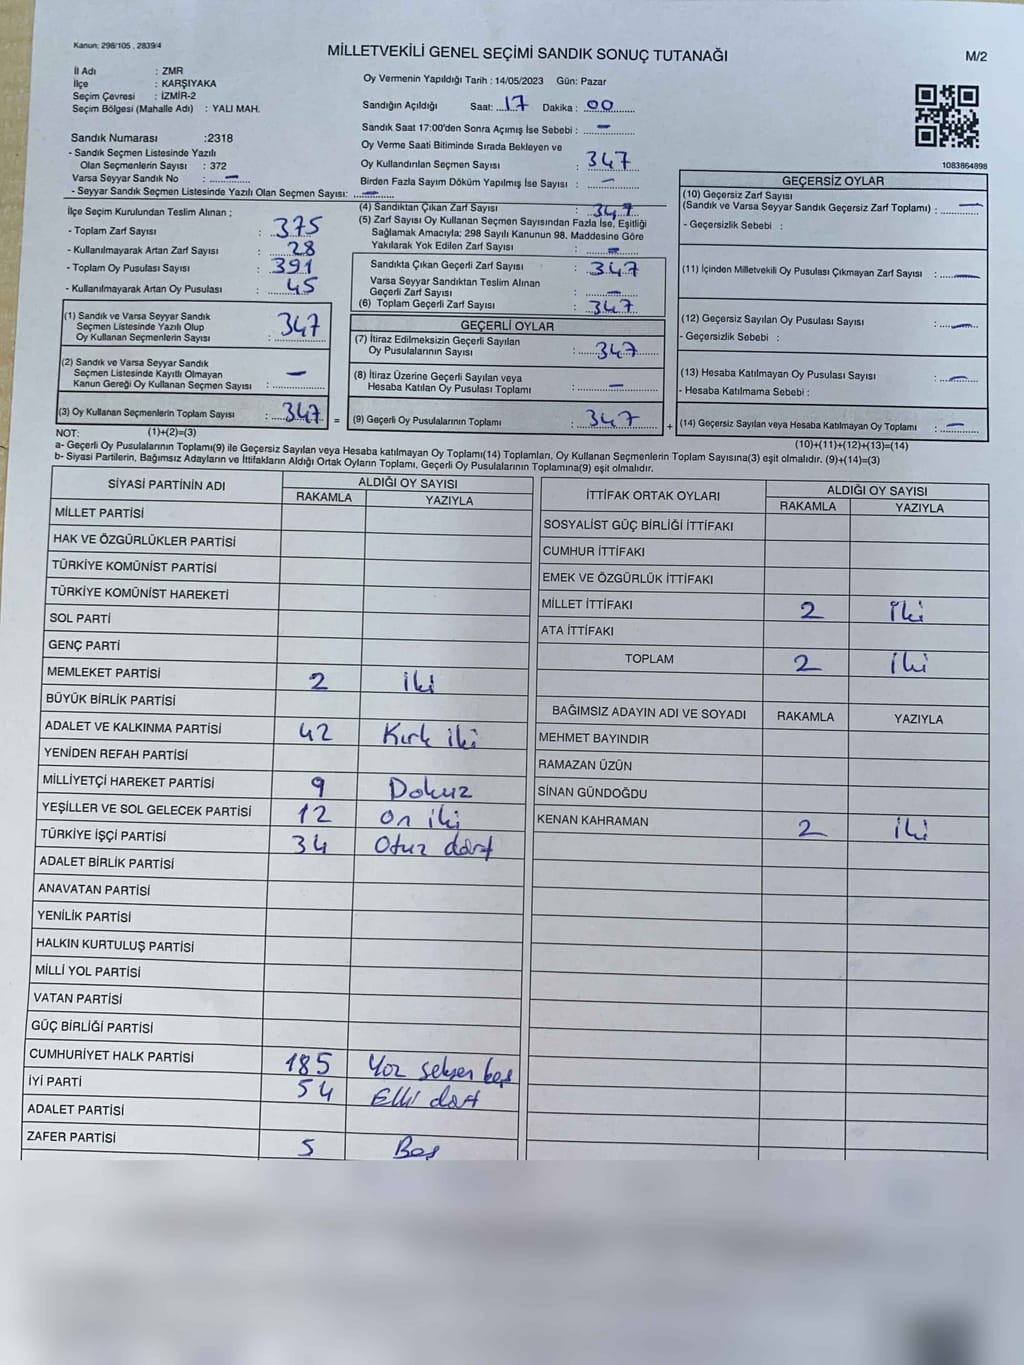 Kanun: 298/105 , 2839/4
MİLLETVEKİLİ GENEL SEÇİMİ SANDIK SONUÇ TUTANAĞI
M/2
İl Adı : ZMR
İlçe : KARŞIYAKA
Seçim Çevresi : İZMİR-2
Seçim Bölgesi (Mahalle Adı) : YALI MAH.
Sandık Numarası :2318
- Sandık Seçmen Listesinde Yazılı
Olan Seçmenlerin Sayısı : 372
Varsa Seyyar Sandık No : —
- Seyyar Sandık Seçmen Listesinde Yazılı Olan Seçmen Sayısı: —
Oy Vermenin Yapıldığı Tarih : 14/05/2023 Gün: Pazar
Sandığın Açıldığı Saat: 17 Dakika : 00
Sandık Saat 17:00'den Sonra Açımış İse Sebebi : —
Oy Verme Saati Bitiminde Sırada Bekleyen ve
Oy Kullandırılan Seçmen Sayısı : 347
Birden Fazla Sayım Döküm Yapılmış İse Sayısı : —
1083864898
İlçe Seçim Kurulundan Teslim Alınan ;
- Toplam Zarf Sayısı : 375
- Kullanılmayarak Artan Zarf Sayısı : 28
- Toplam Oy Pusulası Sayısı : 391
- Kullanılmayarak Artan Oy Pusulası : 45
(1) Sandık ve Varsa Seyyar Sandık
Seçmen Listesinde Yazılı Olup
Oy Kullanan Seçmenlerin Sayısı : 347
(2) Sandık ve Varsa Seyyar Sandık
Seçmen Listesinde Kayıtlı Olmayan
Kanun Gereği Oy Kullanan Seçmen Sayısı : —
(3) Oy Kullanan Seçmenlerin Toplam Sayısı : 347 =
(4) Sandıktan Çıkan Zarf Sayısı : 347
(5) Zarf Sayısı Oy Kullanan Seçmen Sayısından Fazla İse, Eşitliği
Sağlamak Amacıyla: 298 Sayılı Kanunun 98. Maddesine Göre
Yakılarak Yok Edilen Zarf Sayısı : —
Sandıkta Çıkan Geçerli Zarf Sayısı : 347
Varsa Seyyar Sandıktan Teslim Alınan
Geçerli Zarf Sayısı : —
(6) Toplam Geçerli Zarf Sayısı : 347
GEÇERLİ OYLAR
(7) İtiraz Edilmeksizin Geçerli Sayılan
Oy Pusulalarının Sayısı : 347
(8) İtiraz Üzerine Geçerli Sayılan veya
Hesaba Katılan Oy Pusulası Toplamı : —
(9) Geçerli Oy Pusulalarının Toplamı : 347 +
GEÇERSİZ OYLAR
(10) Geçersiz Zarf Sayısı
(Sandık ve Varsa Seyyar Sandık Geçersiz Zarf Toplamı) : —
- Geçersizlik Sebebi :
(11) İçinden Milletvekili Oy Pusulası Çıkmayan Zarf Sayısı : —
(12) Geçersiz Sayılan Oy Pusulası Sayısı : —
- Geçersizlik Sebebi :
(13) Hesaba Katılmayan Oy Pusulası Sayısı : —
- Hesaba Katılmama Sebebi :
(14) Geçersiz Sayılan veya Hesaba Katılmayan Oy Toplamı : —
NOT: (1)+(2)=(3)
(10)+(11)+(12)+(13)=(14)
a- Geçerli Oy Pusulalarının Toplamı(9) ile Geçersiz Sayılan veya Hesaba katılmayan Oy Toplamı(14) Toplamları, Oy Kullanan Seçmenlerin Toplam Sayısına(3) eşit olmalıdır. (9)+(14)=(3)
b- Siyasi Partilerin, Bağımsız Adayların ve İttifakların Aldığı Ortak Oyların Toplamı, Geçerli Oy Pusulalarının Toplamına(9) eşit olmalıdır.
SİYASİ PARTİNİN ADI ALDIĞI OY SAYISI
RAKAMLA YAZIYLA
MİLLET PARTİSİ
HAK VE ÖZGÜRLÜKLER PARTİSİ
TÜRKİYE KOMÜNİST PARTİSİ
TÜRKİYE KOMÜNİST HAREKETİ
SOL PARTİ
GENÇ PARTİ
MEMLEKET PARTİSİ 2 iki
BÜYÜK BİRLİK PARTİSİ
ADALET VE KALKINMA PARTİSİ 42 Kırk iki
YENİDEN REFAH PARTİSİ
MİLLİYETÇİ HAREKET PARTİSİ 9 Dokuz
YEŞİLLER VE SOL GELECEK PARTİSİ 12 on iki
TÜRKİYE İŞÇİ PARTİSİ 34 Otuz dört
ADALET BİRLİK PARTİSİ
ANAVATAN PARTİSİ
YENİLİK PARTİSİ
HALKIN KURTULUŞ PARTİSİ
MİLLİ YOL PARTİSİ
VATAN PARTİSİ
GÜÇ BİRLİĞİ PARTİSİ
CUMHURİYET HALK PARTİSİ 185 Yüz seksen beş
İYİ PARTİ 54 Elli dört
ADALET PARTİSİ
ZAFER PARTİSİ 5 Beş
İTTİFAK ORTAK OYLARI ALDIĞI OY SAYISI
RAKAMLA YAZIYLA
SOSYALİST GÜÇ BİRLİĞİ İTTİFAKI
CUMHUR İTTİFAKI
EMEK VE ÖZGÜRLÜK İTTİFAKI
MİLLET İTTİFAKI 2 iki
ATA İTTİFAKI
TOPLAM 2 iki
BAĞIMSIZ ADAYIN ADI VE SOYADI RAKAMLA YAZIYLA
MEHMET BAYINDIR
RAMAZAN ÜZÜN
SİNAN GÜNDOĞDU
KENAN KAHRAMAN 2 iki